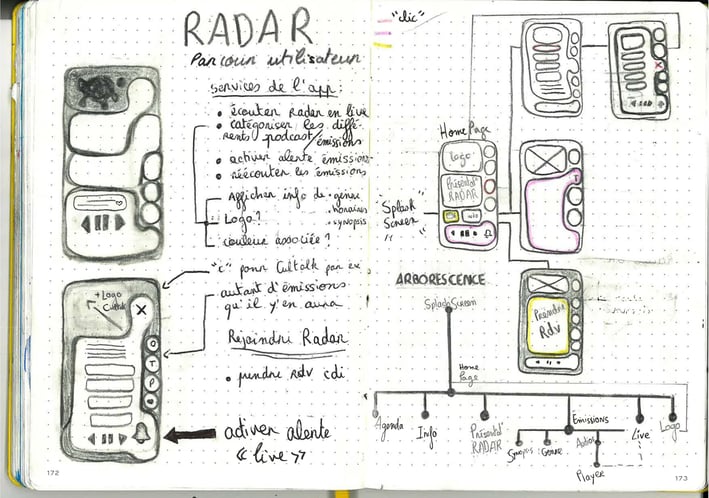 RADAR
Parcours utilisateur
services de l'app :
• écouter Radar en live
• catégoriser les diffé-
rents podcast/émissions
• activer alerte émissions
• réécouter les émissions
Afficher info de • genre
• horaires
• synopsis
Logo ?
couleur associée ?
"c" pour Cultalk par ex
autant d'émissions
qu'il y'en aura
Rejoindre Radar
• prendre rdv cdi
activer alerte
« live »
+ Logo
X
C
T
P
172
"clic"
HomePage
logo
Présentat°
RADAR
info
"Splash
Screen"
T
X
Prendre
Rdv
ARBORESCENCE
SplashScreen
Home
Page
Agenda
Info
Présentat°
RADAR
Emissions
Live
Logo
Synopsis
Genre
Player
173